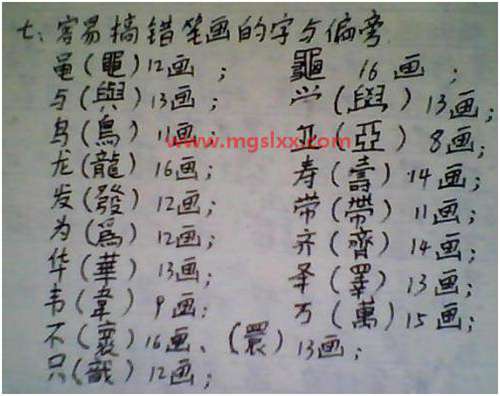 七、容易搞错笔画的字与偏旁
黾(黽)12画； 龜 16画；
与(與)13画； 𰃮(與)13画；
鸟(鳥)11画； 亚(亞)8画；
www.mgslxx.com
龙(龍)16画； 寿(壽)14画；
发(發)12画； 带(帶)11画；
为(為)12画； 齐(齊)14画；
华(華)13画； 𠬤(睪)13画；
韦(韋)9画； 万(萬)15画；
不(褱)16画、(睘)13画；
只(戠)12画；